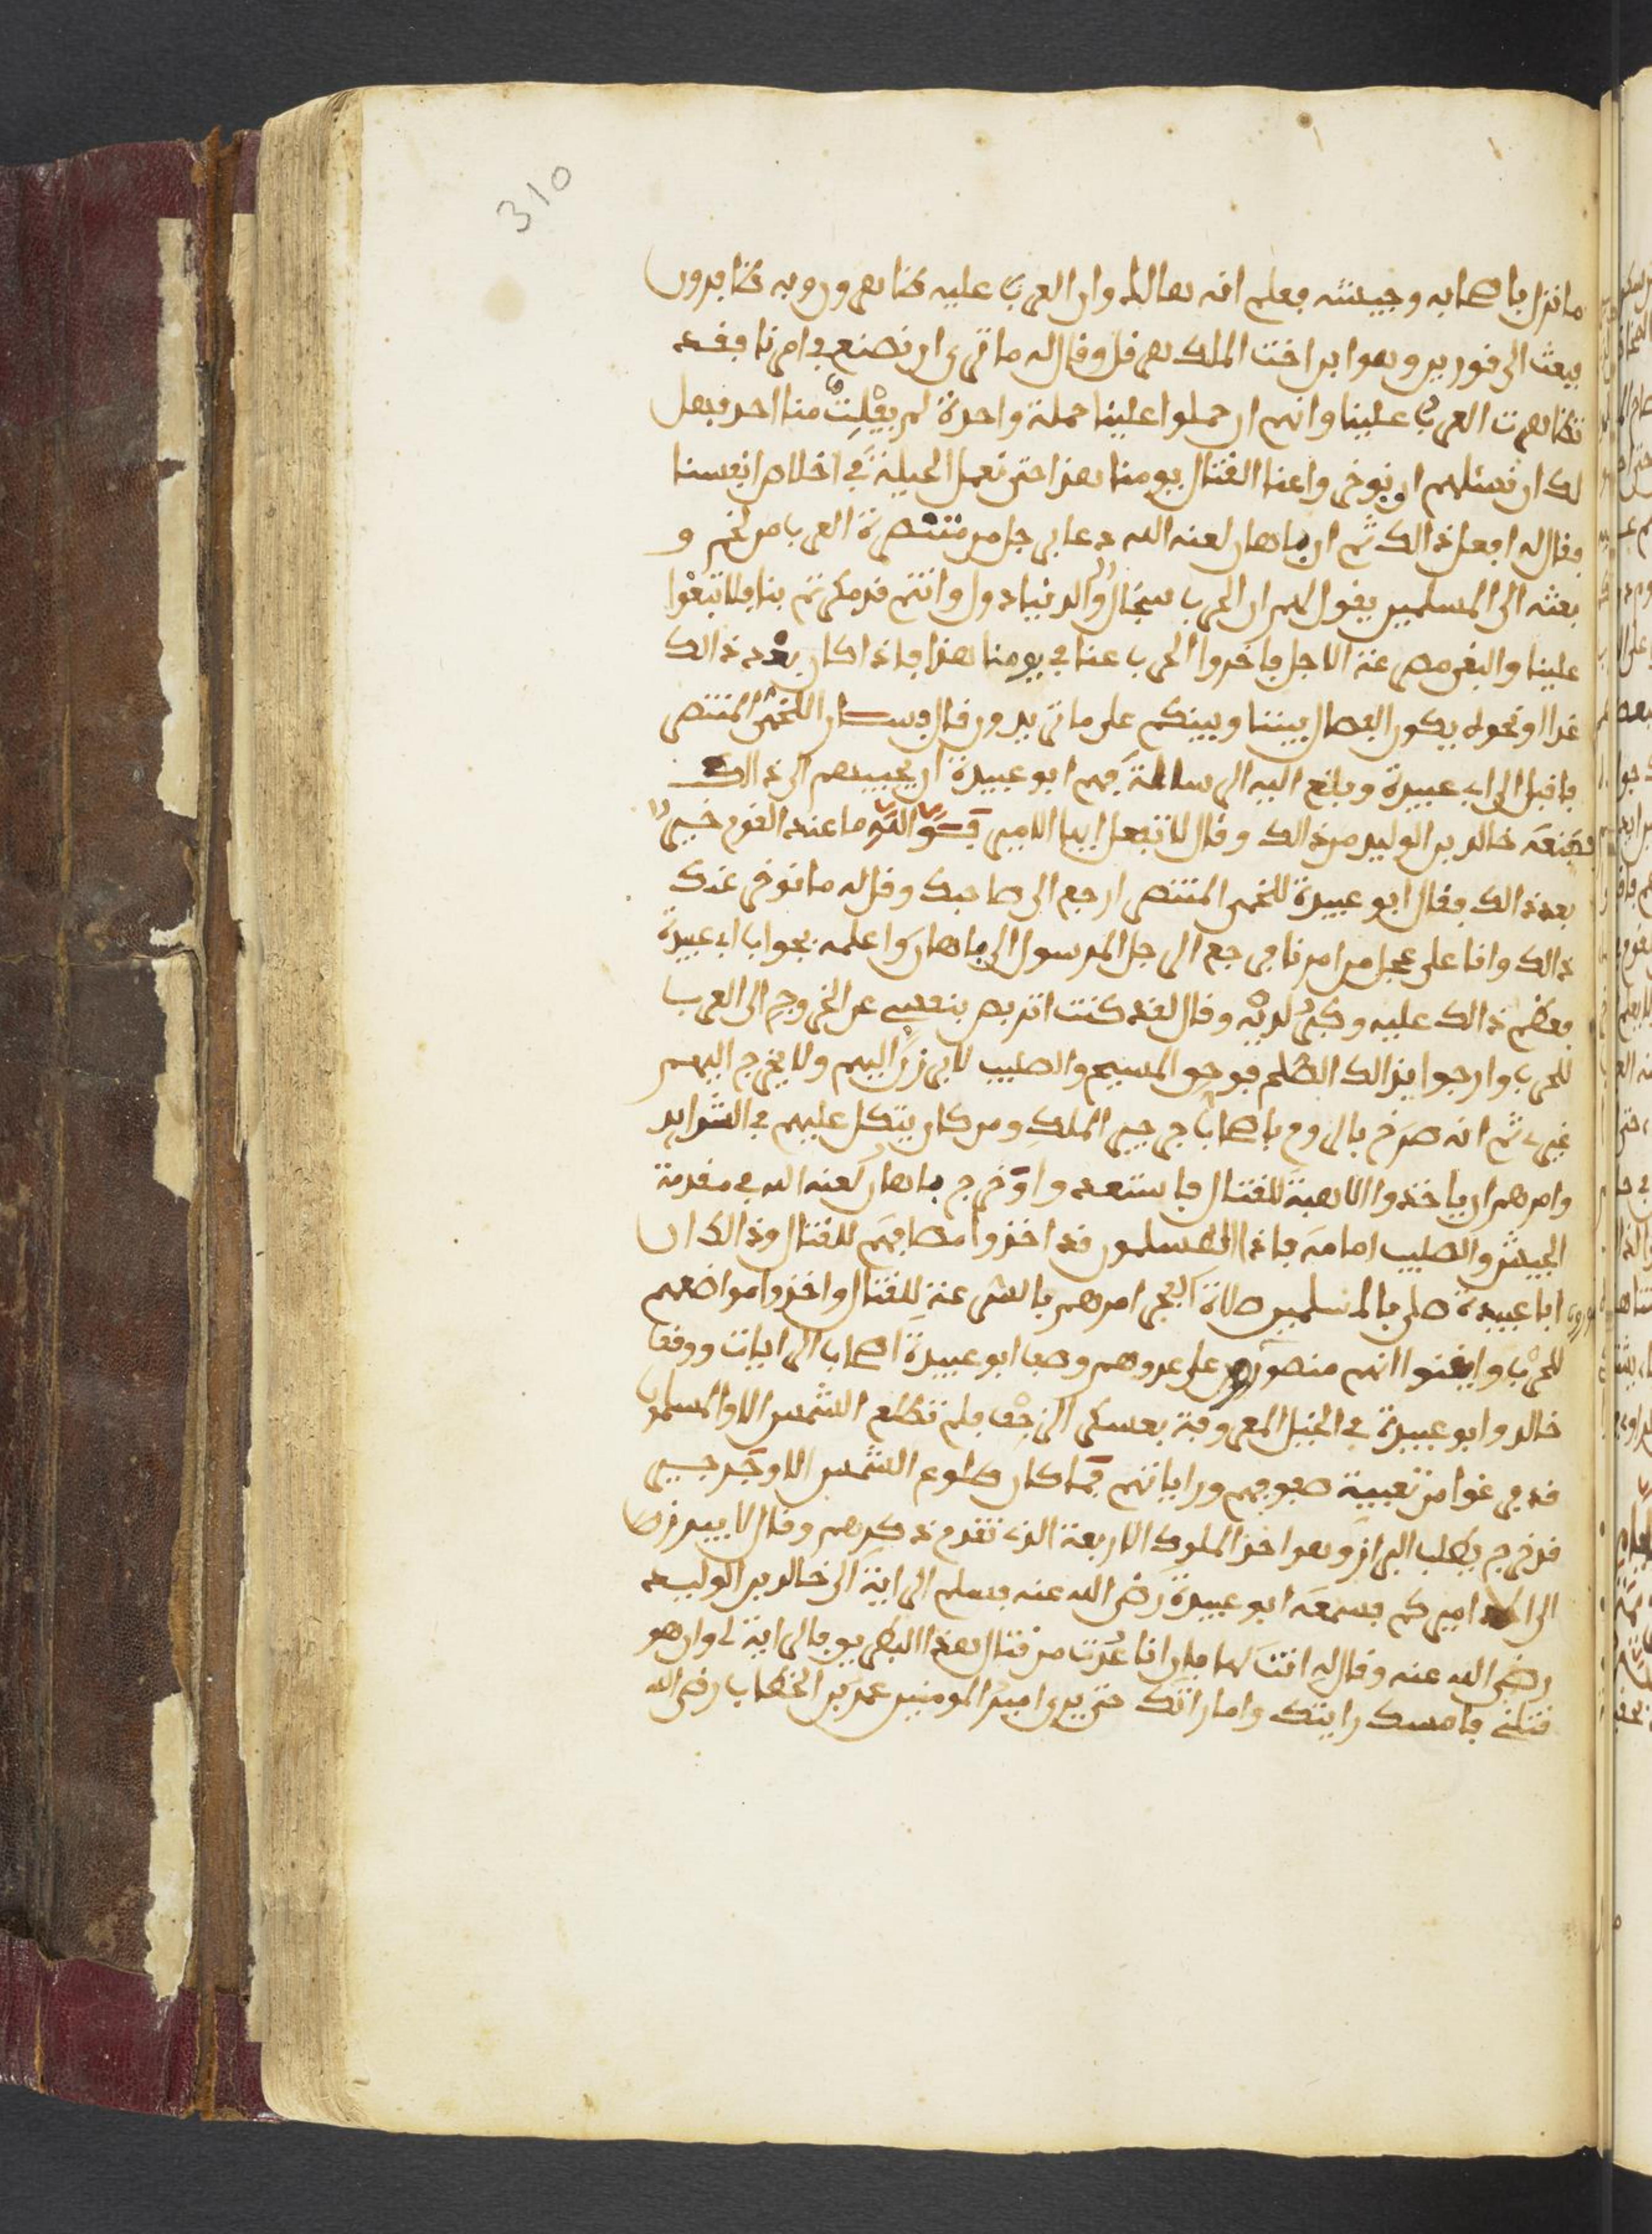 310
ما نزل باصحابه وجيشه فعلم انه هالك وان العرب عليه ظاهرون وبه ظافرون
فبعث الى قورين وهو ابن اخت الملك هرقل وقال له ما ترى ان نصنع في امرنا فقد
تظاهرت العرب علينا وانهم ان حملوا علينا حملة واحدة لم يفلت منا احد فهل
لك ان نسئلهم ان يوخروا عنا القتال يومنا هذا حتى نعمل الحيلة في اخلاص انفسنا
فقال له افعل ذالك ثم ان باهان لعنه الله دعا برجل من متنصرة العرب من لخم و
بعثه الى المسلمين يقول لهم ان الحرب سجال والدنيا دول وانتم قد مكرتم بنا فلا تبغوا
علينا والبغي مصرعته الاجل فاخروا الحرب عنا في يومنا هذا فاذا كان بعد ذالك
غدا او نحوه يكون الفصال بيننا وبينكم على ما تريدون قال فسار اللخمي المتنصر
فاقبل الى ابي عبيدة وبلغ اليه الرسالة فهم ابو عبيدة ان يجيبهم الى ذالك
فمنعه خالد بن الوليد من ذالك وقال لا تفعل ايها الامير فوالله ما عند القوم خير
بعد ذالك فقال ابو عبيدة للخمي المتنصر ارجع الى صاحبك وقل له ما نوخر عنك
ذالك وانا على عجل من امرنا فرجع الرجل المرسول الى باهان واعلمه بجواب ابي عبيدة
فعظم ذالك عليه وكبر لديه وقال لقد كنت اتربص بنفسي عن الخروج الى العرب
للحرب وارجوا بذالك الظلم فوحق المسيح والصليب لا يبرز اليهم ولا يخرج اليهم
غيري ثم انه صرخ بالروم باصحاب جرجير الملك ومن كان يتكل عليهم في الشدايد
وامرهم ان ياخذوا الاهبة للقتال فاستعدوا وخرج باهان لعنه الله في مقدمة
الجيش والصليب امامه فاذا المسلمون قد اخذوا مصافهم للقتال وذالك ان
ابا عبيدة صلى بالمسلمين صلاة الفجر امرهم بالسرعة للقتال واخذوا مواضعهم
للحرب وايقنوا انهم منصورون على عدوهم وصف ابو عبيدة اصحاب الرايات ووقف
خالد وابو عبيدة في الخيل المعروفة بعسكر الزحف فلم تطلع الشمس الا والمسلمون
قد فرغوا من تعبية صفوفهم وراياتهم فما كان طلوع الشمس الا وجرجير
قد خرج يطلب البراز وهو احد الملوك الاربعة الذي تقدم ذكرهم وقال لا يبرزن
الى الا اميركم فسمعه ابو عبيدة رضي الله عنه فسلم الراية الى خالد بن الوليد
رضي الله عنه وقال له انت لها فان انا عدت من قتال هذا البطريق فالراية لي وان هو
قتلني فامسك رايتك وامارتك حتى يرى امير المومنين عمر بن الخطاب رضي الله